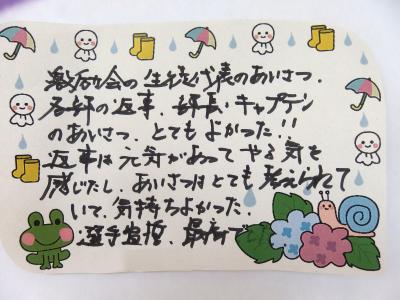 激励会の生徒代表のあいさつ、
各部の返事、部長・キャプテン
のあいさつ、とてもよかった!!
返事は元気があってやる気を
感じたし、あいさつはとても考えられて
いて、気持ちよかった。
選手宣誓、最高で